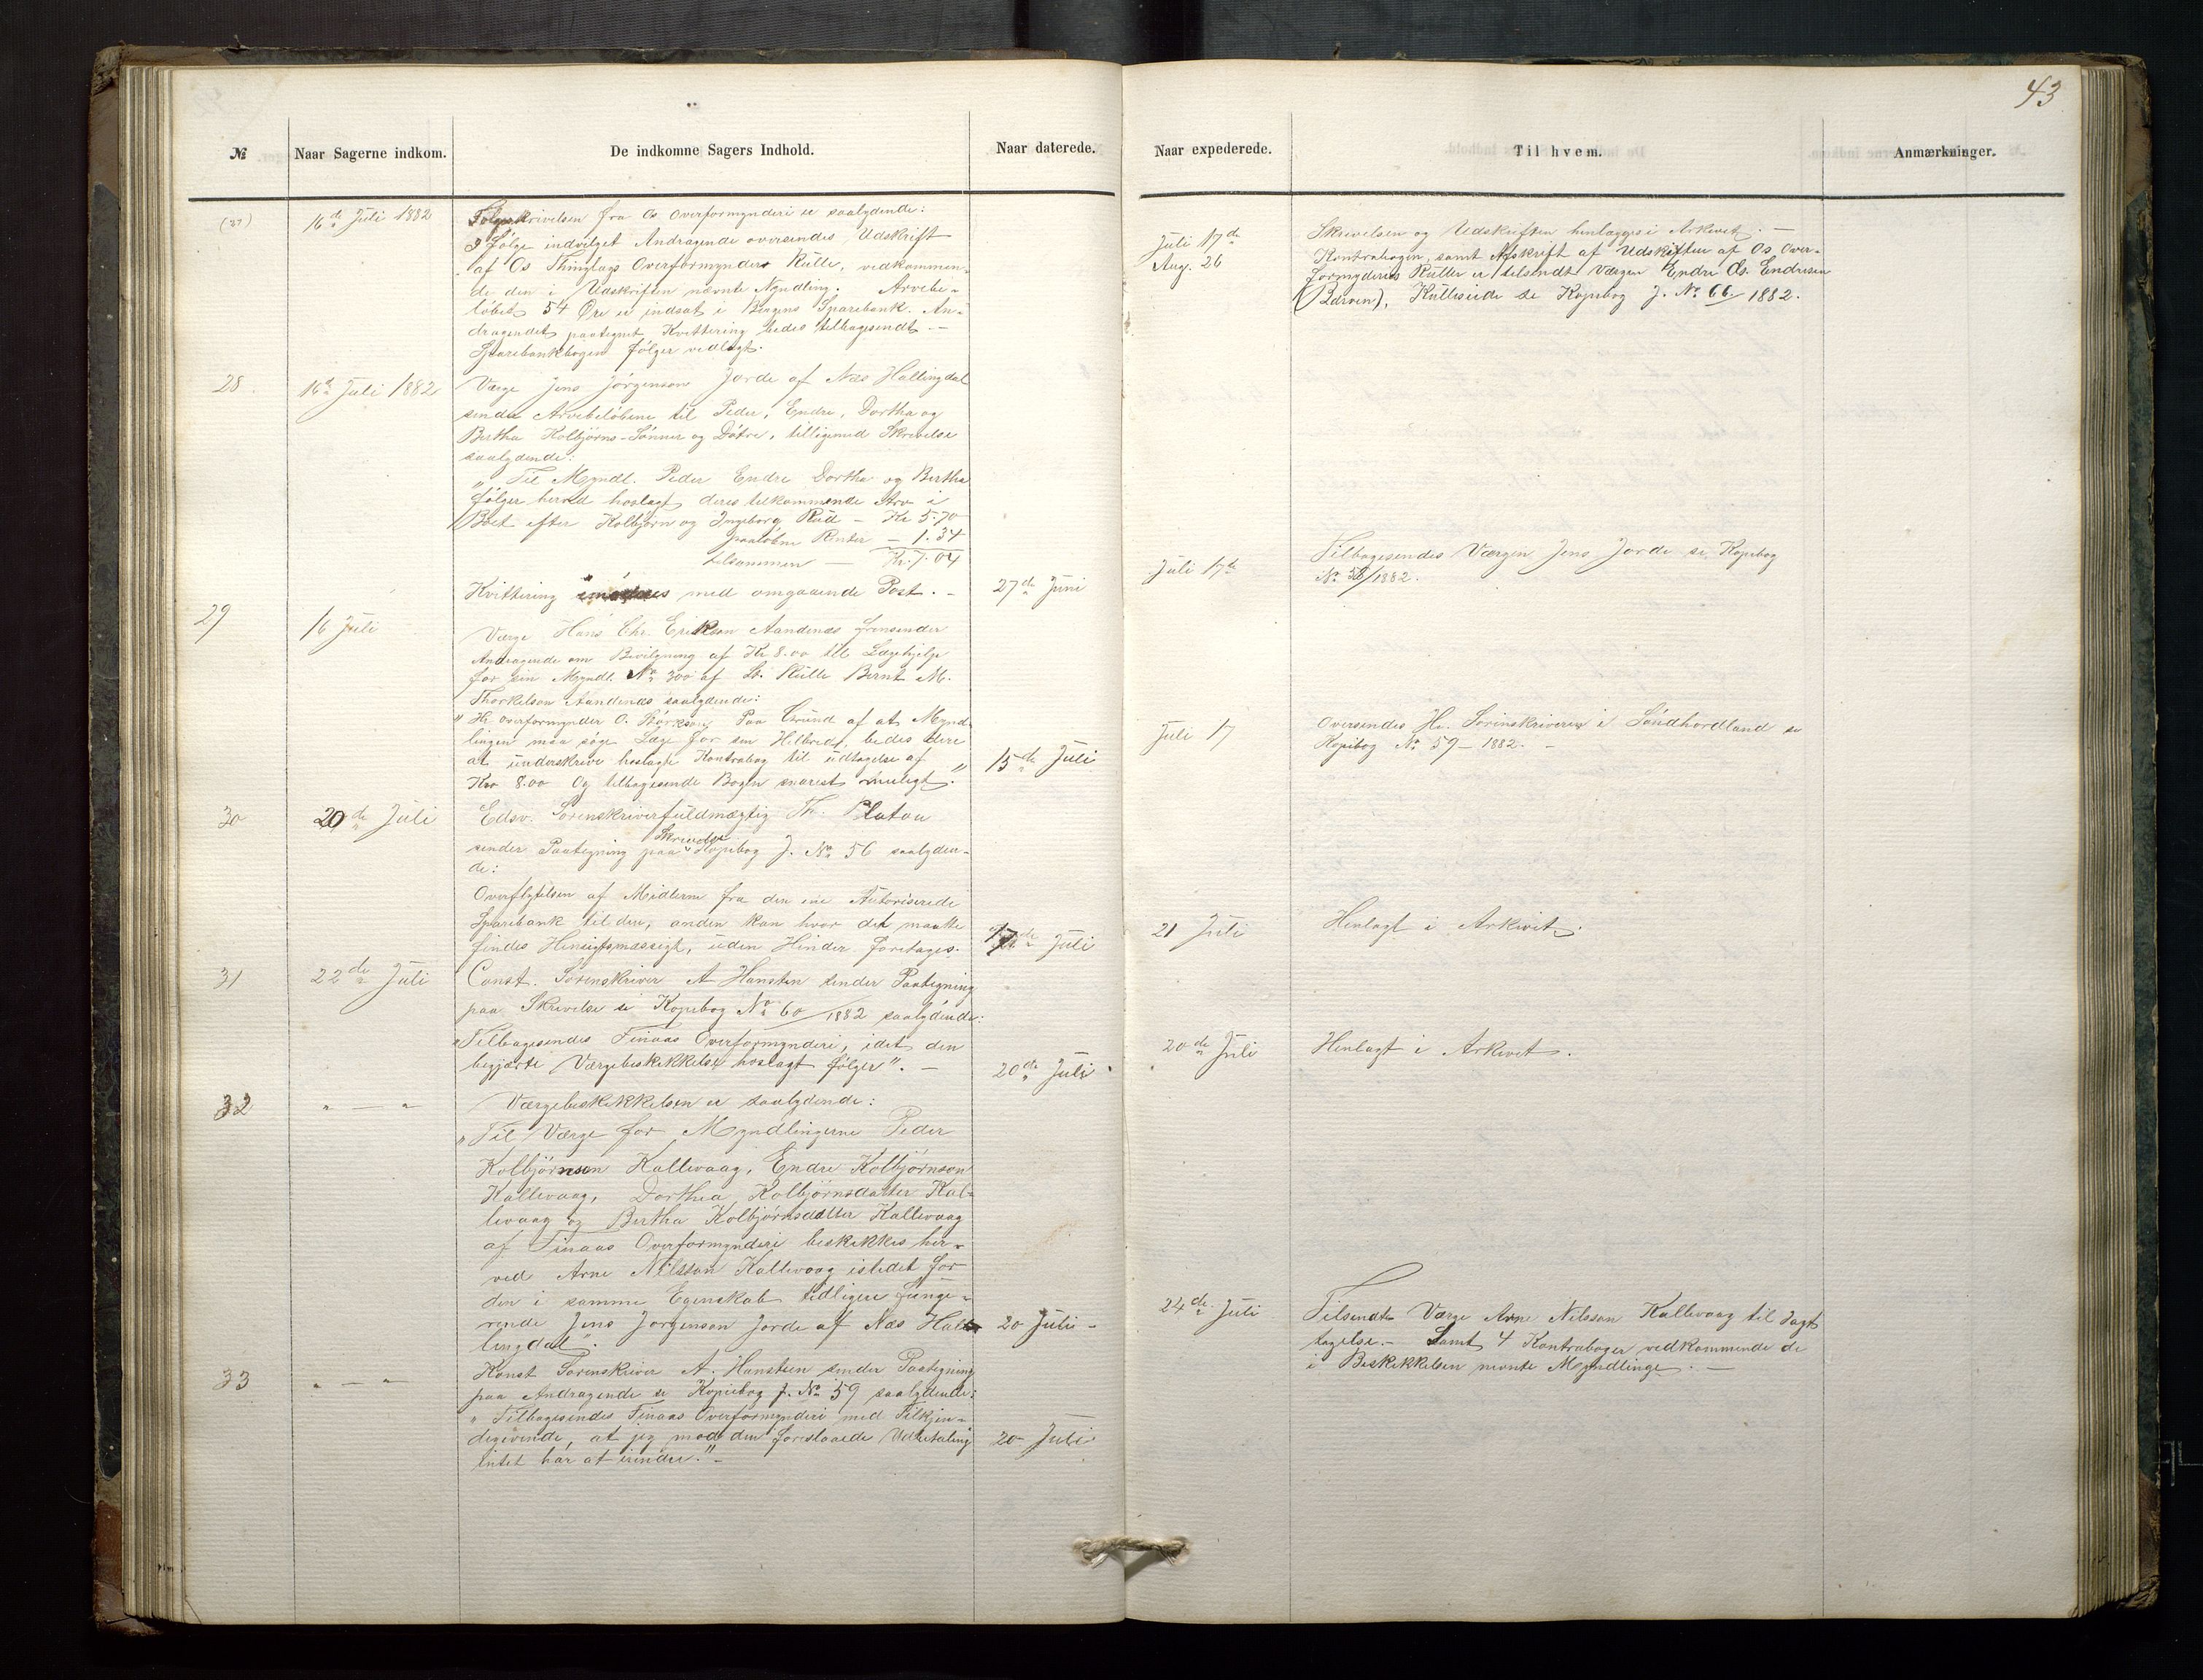 43
№ Naar Sagerne indkom. De indkomne Sagers Indhold. Naar daterede. Naar expederede. Til hvem. Anmærkninger.
(27) 16de Juli 1882
Følgeskrivelsen fra Os Overformynderi er saalydende:
I Følge indvilget Andragende oversendes Udskrift
af Os Thinglags Overformynders Rulle, vedkommen-
de den i Udskriften nævnte Myndling. Arvebe-
løbet 54 Øre er indsat i Bergens Sparebank. An-
dragendet paategnet Kvittering bedes tilbagesendt. -
Sparebankbogen følger vedlagt.
Juli 17de
Aug. 26
Skrivelsen og Udskriften henlægges i Arkivet. -
Kontrabogen, samt Afskrift af Udskriften af Os Over-
formynderis Ruller er tilsendt Værgen Endre Os. Endresen
Kulleseide se Kopibog J. No 66. 1882.
28 16de Juli 1882
Værge Jens Jørgenson Jorde af Næs Hallingdal
sender Arvebeløbene til Peder, Endre, Dortha og
Bertha Kolbjørns-Sønner og Døtre, tilligemed Skrivelse
saalydende:
„Til Myndl. Peder Endre Dortha og Bertha
følger herved hoslagt deres tilkommende Arv i
Boet efter Kolbjørn og Ingeborg Rud - Kr 5.70
paaløbne Renter - 1.34
tilsammen - Kr. 7.04
Kvittering imødesees med omgaaende Post. -
27de Juni
Juli 17de
Tilbagesendes Værgen Jens Jorde se Kopibog
No 58/1882.
29 16 Juli
Værge Hans Chr. Erikson Aandenæs frensender
Andragende om Bevilgning af Kr 8.00 til Lægehjelp
for sin Myndl. No 300 af Rulle Bernt M.
Thorkelson Aandenæs saalydende:
„Hr. Overformynder O. Størkson, Paa Grund af at Mynd-
lingen maa søge Læge for sin Helbred, bedes dere
at underskrive hoslagte Kontrabog til udtagelse af
Kro 8.00 Og tilbagesende Bogen snarest muligt."
15de Juli
Juli 17
Oversendes Hr. Sorinskriveren i Søndhordland se
Kopibog No 59 - 1882. -
30 20de Juli
Edsv. Sorenskriverfuldmægtig Th. Platou
sender Paategning paa Skrivelse Kopibog J. No 56 saalyden-
de:
Overflytelsen af Midlerne fra den ene Autoriserede
Sparebank til den, anden kan hvor det maatte
findes Hensigtsmæssigt, uden Hinder foretages.
Juli
21 Juli
Henlagt i Arkivet.
31 22de Juli
Const. Sorenskriver A Hansten sender Paategning
paa Skrivelse se Kopibog No 60/1882 saalydende:
„Tilbagesendes Finaas Overformynderi, idet den
begjærte Værgebeskikkelse hoslagt følger". -
20de Juli
20de Juli
Henlagt i Arkivet.
32 „ - „
Værgebeskikkelsen er saalydende:
„Til Værge for Myndlingerne Peder
Kolbjørnson Kallevaag, Endre Kolbjørnson
Kallevaag, Dorthea Kolbjørnsdatter Kal-
levaag og Bertha Kolbjørnsdatter Kallevaag
af Finaas Overformynderi beskikkes her-
ved Arne Nilsson Kallevaag istedet for
den i samme Egenskab tidligere funge-
rende Jens Jørgenson Jorde af Næs Hal-
lingdal".
20 Juli -
24de Juli
Tilsendt Værge Arne Nilsson Kallevaag til Jagt
tagelse. - Samt 4 Kontrabøger vedkommende de
i Beskikkelsen nevnte Myndlinge. -
33 „ - „
Konst Sorenskriver A. Hansten sender Paategning
paa Andragende se Kopiebog J. No 59 saalydende:
„Tilbagesendes Finaas Overformynderi med Tilkjen-
degivende, at jeg mod den foreslaaede Udbetaling
intet har at erindre." -
20 Juli